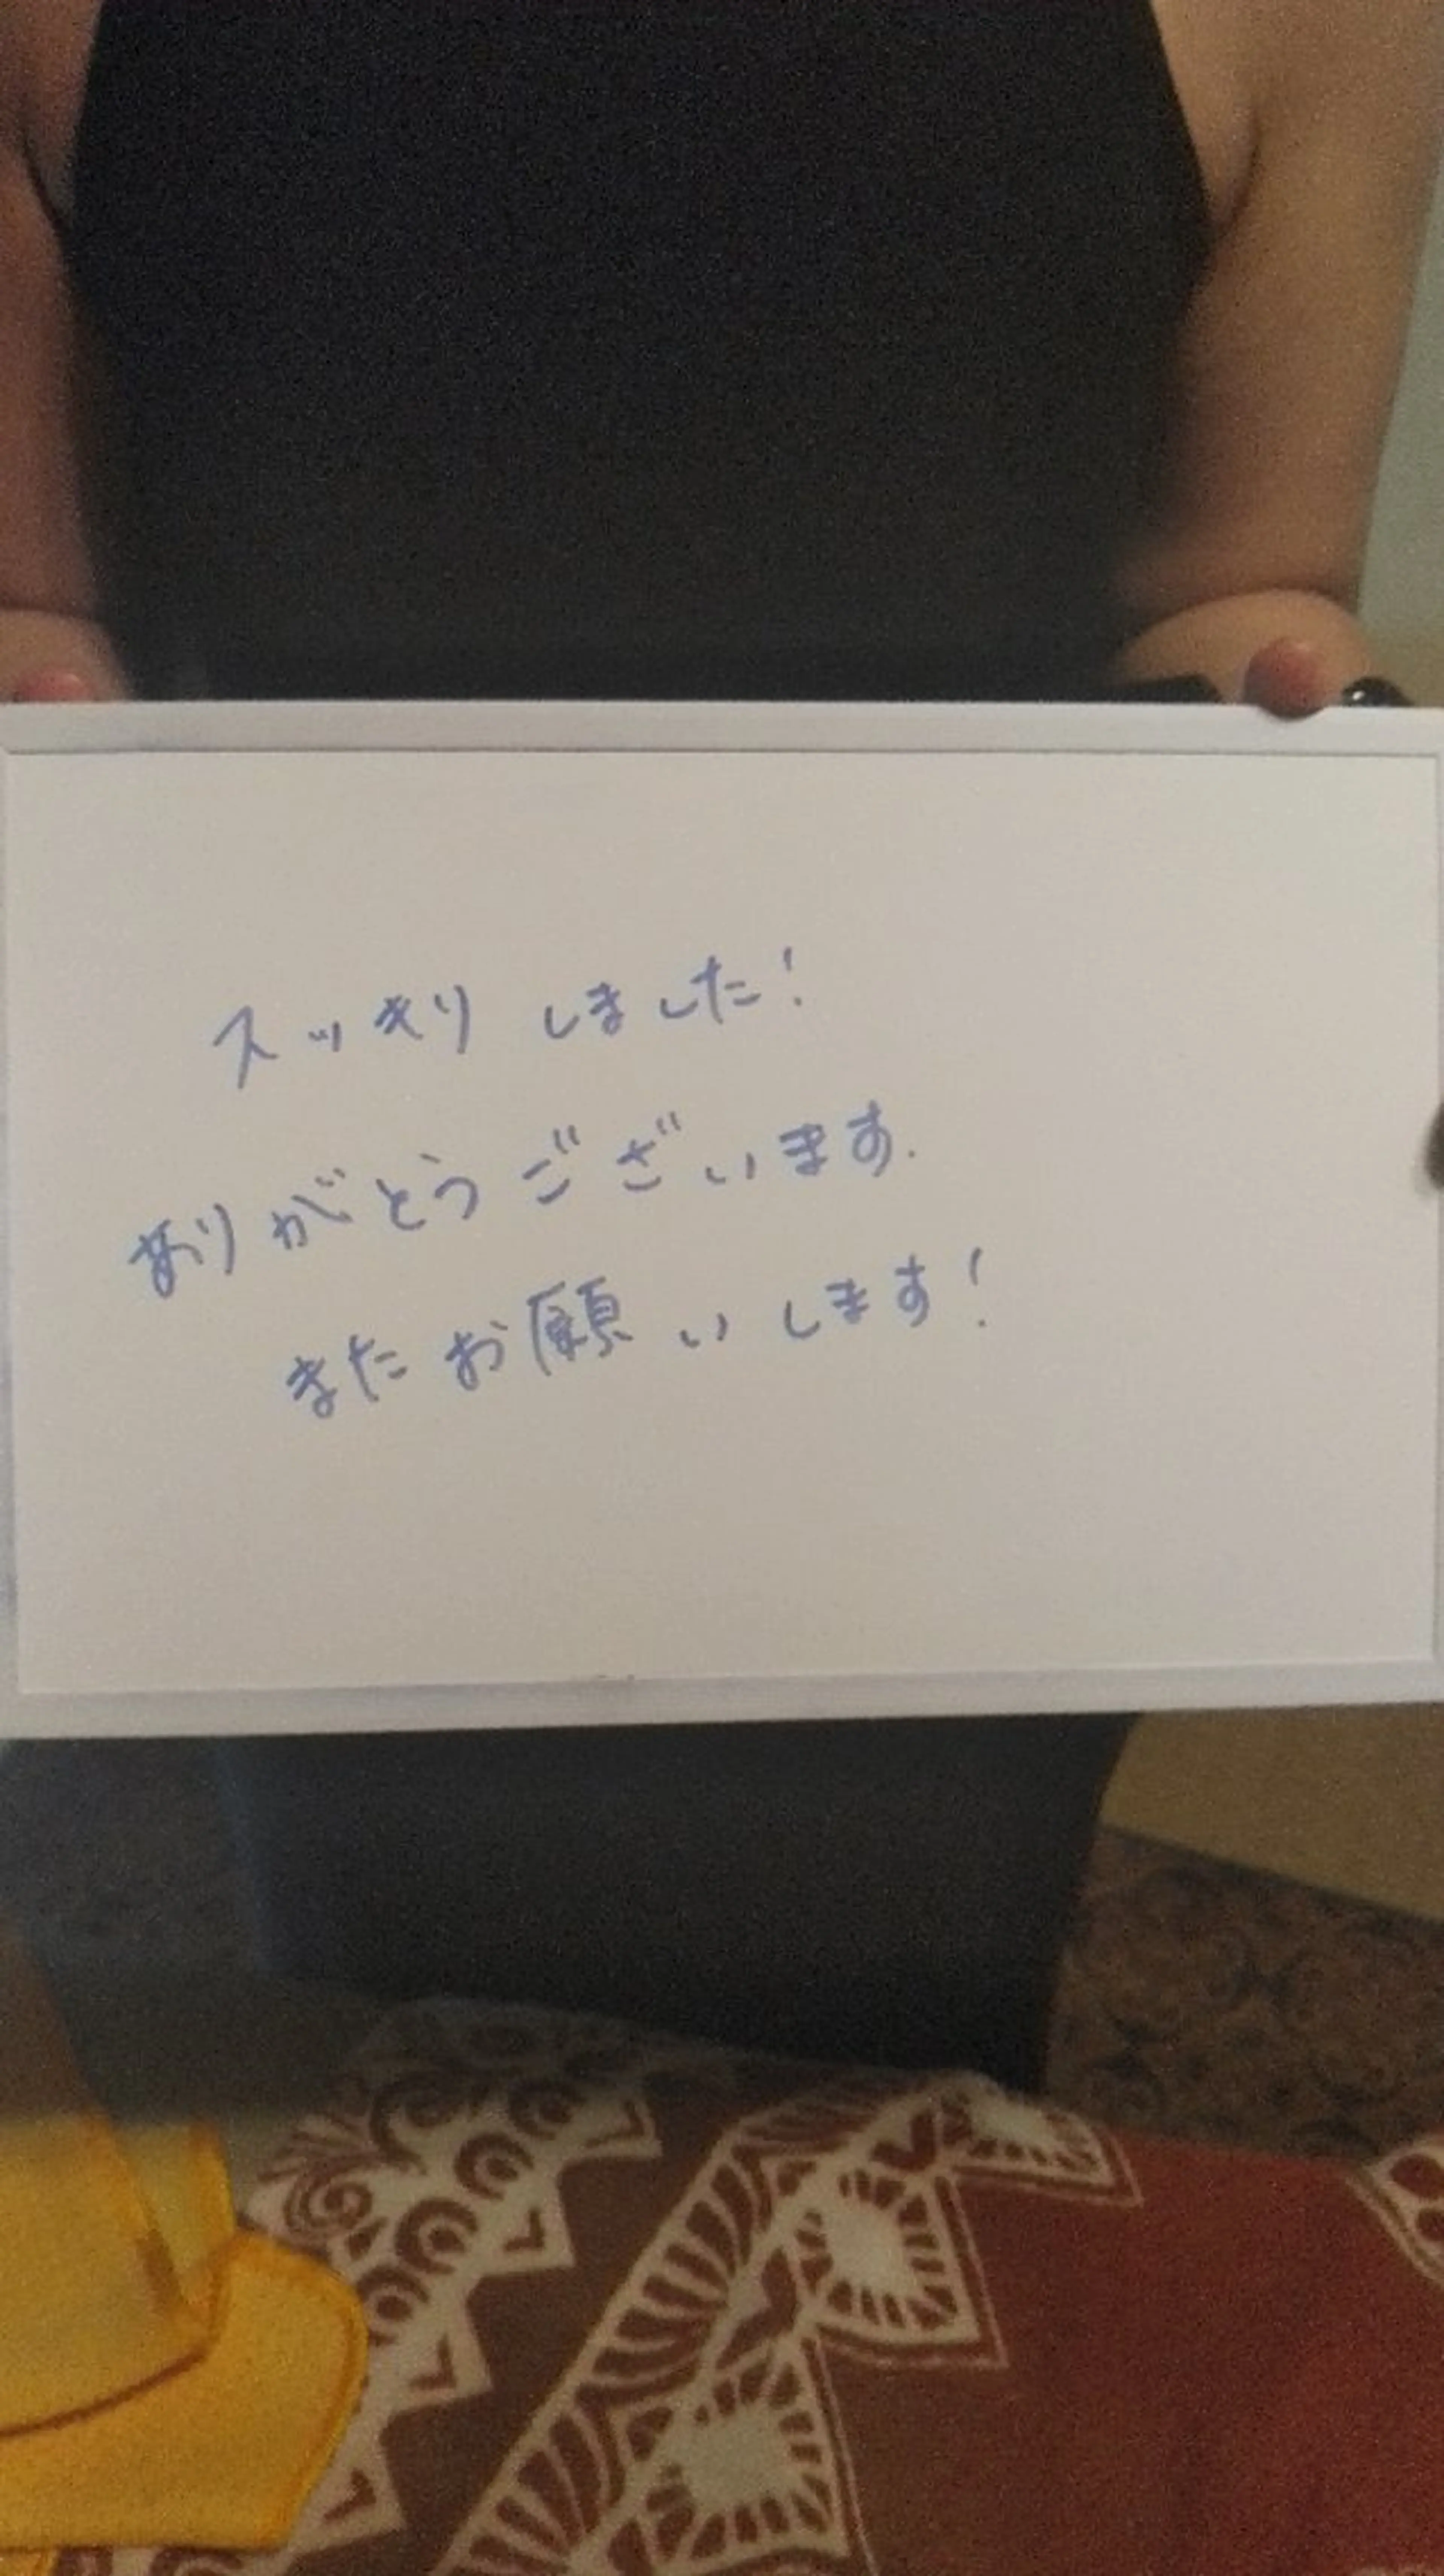 スッキリしました！
ありがとうございます.
またお願いします！